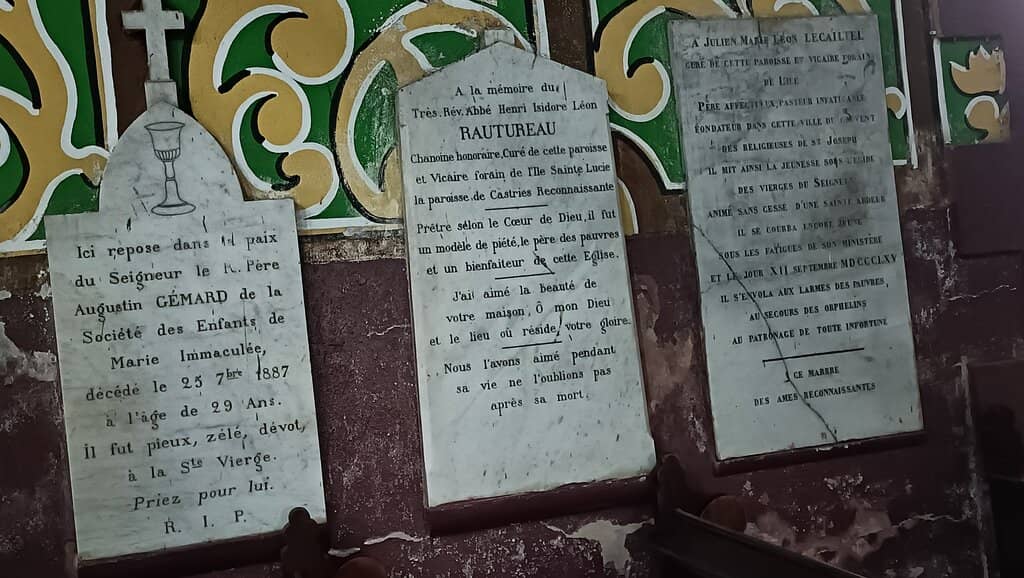 Ici repose dans la paix
du Seigneur le R. Père
Augustin GÉMARD de la
Société des Enfants de
Marie Immaculée,
décédé le 25 7bre 1887
à l'âge de 29 Ans.
Il fut pieux, zélé, dévot,
à la Ste Vierge.
Priez pour lui.
R. I. P.
A la mémoire du
Très Rév. Abbé Henri Isidore Léon
RAUTUREAU
Chanoine honoraire, Curé de cette paroisse
et Vicaire forain de l'Ile Sainte Lucie
la paroisse de Castries Reconnaissante
Prêtre sélon le Cœur de Dieu, il fut
un modèle de piété, le père des pauvres
et un bienfaiteur de cette Eglise.
J'ai aimé la beauté de
votre maison, Ô mon Dieu
et le lieu où réside votre gloire.
Nous l'avons aimé pendant
sa vie ne l'oublions pas
après sa mort.
A JULIEN MARIE LÉON LECAILTEL
CURÉ DE CETTE PAROISSE ET VICAIRE FORAIN
DE L'ILE
PÈRE AFFECTUEUX, PASTEUR INFATIGABLE
FONDATEUR DANS CETTE VILLE DU COUVENT
DES RELIGIEUSES DE ST JOSEPH
IL MIT AINSI LA JEUNESSE SOUS L'ÉGIDE
DES VIERGES DU SEIGNEUR
ANIMÉ SANS CESSE D'UNE SAINTE ARDEUR
IL SE COURBA ENCORE JEUNE
SOUS LES FATIGUES DE SON MINISTÈRE
ET LE JOUR XII SEPTEMBRE MDCCCLXV
IL S'ENVOLA AUX LARMES DES PAUVRES,
AU SECOURS DES ORPHELINS
AU PATRONAGE DE TOUTE INFORTUNE
CE MARBRE
DES AMES RECONNAISSANTES